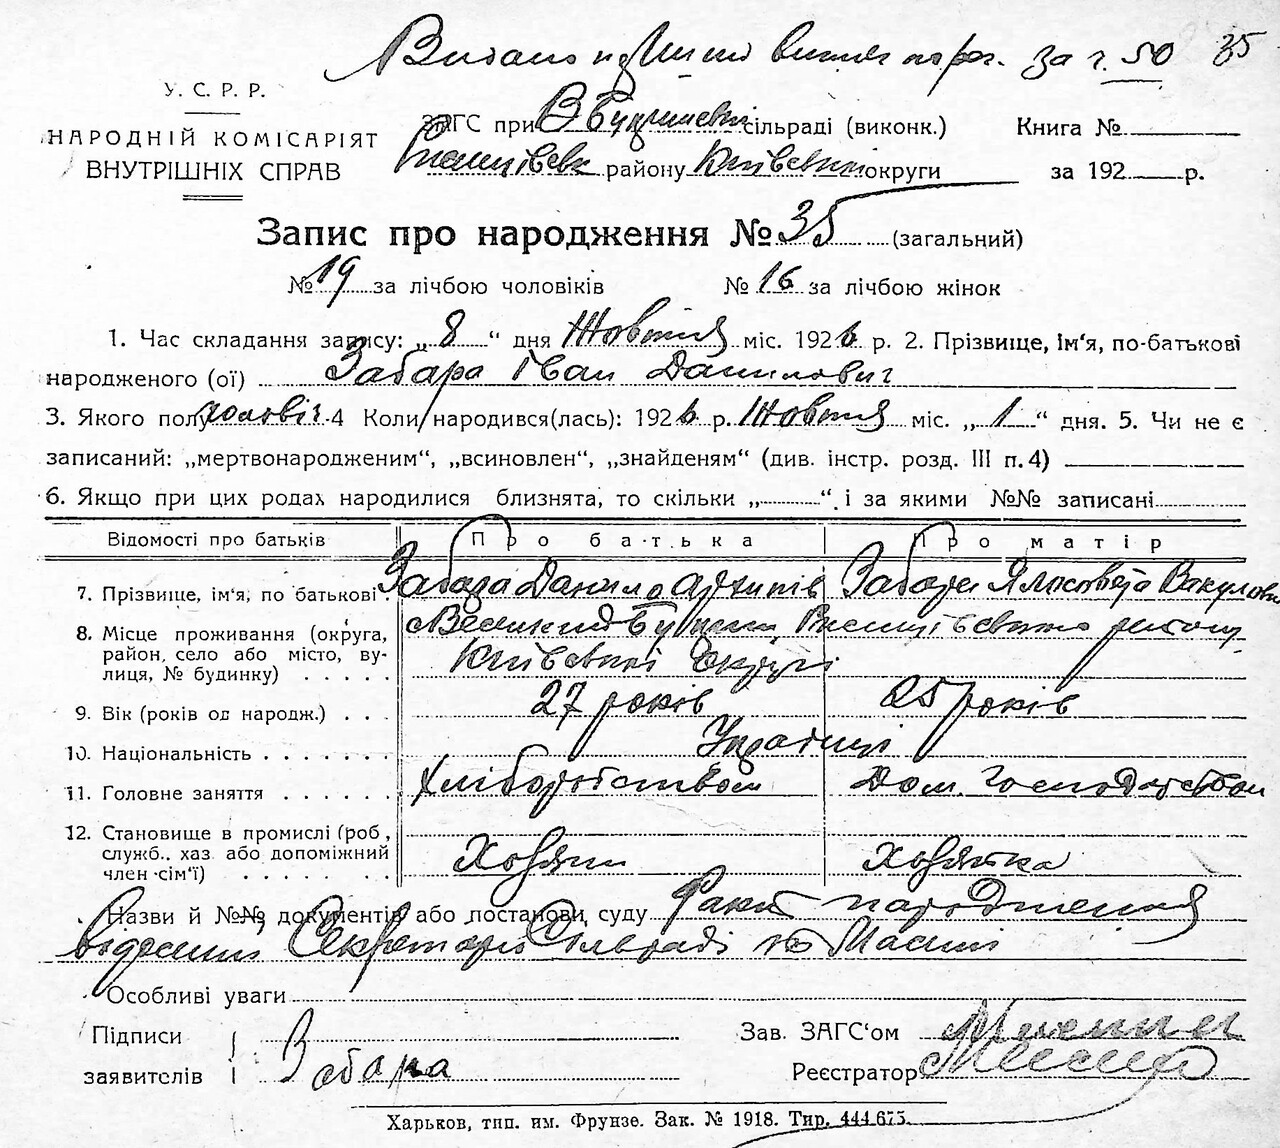 Видано виписку за г. 50 35
У. С. Р. Р.
НАРОДНІЙ КОМІСАРІЯТ
ВНУТРІШНІХ СПРАВ
ЗАГС при В Бугаївській сільраді (виконк.) Книга №
району Київської округи за 192 р.
Запис про народження № 35 (загальний)
№ 19 за лічбою чоловіків № 16 за лічбою жінок
1. Час складання запису: „ 8 “ дня Жовтня міс. 1926 р. 2. Прізвище, ім'я, по-батькові
народженого (ої) Забара Іван Данилович
3. Якого полу чоловіч. 4 Коли народився(лась): 1926 р. Жовтня міс. „ 1 “ дня. 5. Чи не є
записаний: „мертвонародженим“, „всиновлен“, „знайденям“ (див. інстр. розд. III п. 4)
6. Якщо при цих родах народилися близнята, то скільки „ “ і за якими №№ записані
Відомості про батьків Про батька Про матір
7. Прізвище, ім'я, по батькові Забара Данило Архипів Забара Вакулов
8. Місце проживання (округа,
район, село або місто, ву-
лиця, № будинку) Київської округи
9. Вік (років од народж.) 27 років 25 років
10. Національність Українці
11. Головне заняття Хліборобством Дом. Господарством
12. Становище в промислі (роб,
служб., хаз або допоміжний
член сім'ї) Хозяїн Хозяйка
Назви й №№ документів або постанови суду Факт народження
Секретарю Сільради
Особливі уваги
Підписи
заявителів Забара
Зав. ЗАГС'ом
Реєстратор
Харьков, тип. им. Фрунзе. Зак. № 1918. Тир. 444.675.